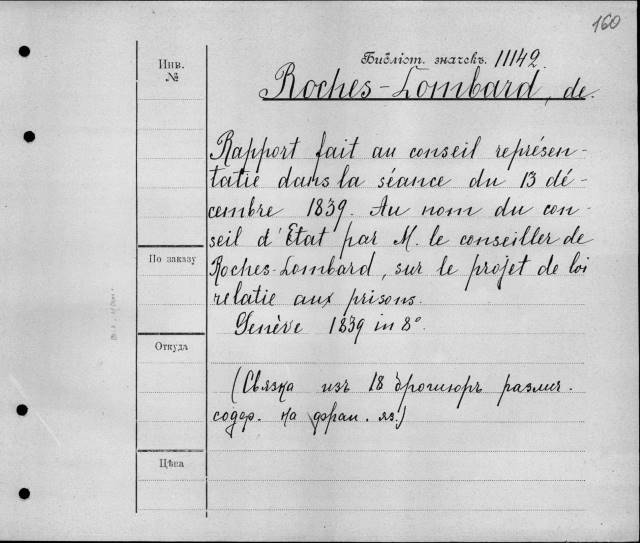 160
Инв. №
Библіот. значекъ. 11142.
Roches-Lombard, de.
Rapport fait au conseil représen-
tatie dans la séance du 13 dé-
cembre 1839. Au nom du con-
seil d'Etat par M. le conseiller de
По заказу
Roches-Lombard, sur le projet de loi
relatie aux prisons.
Genève 1839 in 8°.
Откуда
(Связка изъ 18 брошюръ различ.
содер. на фран. яз.)
Цѣна